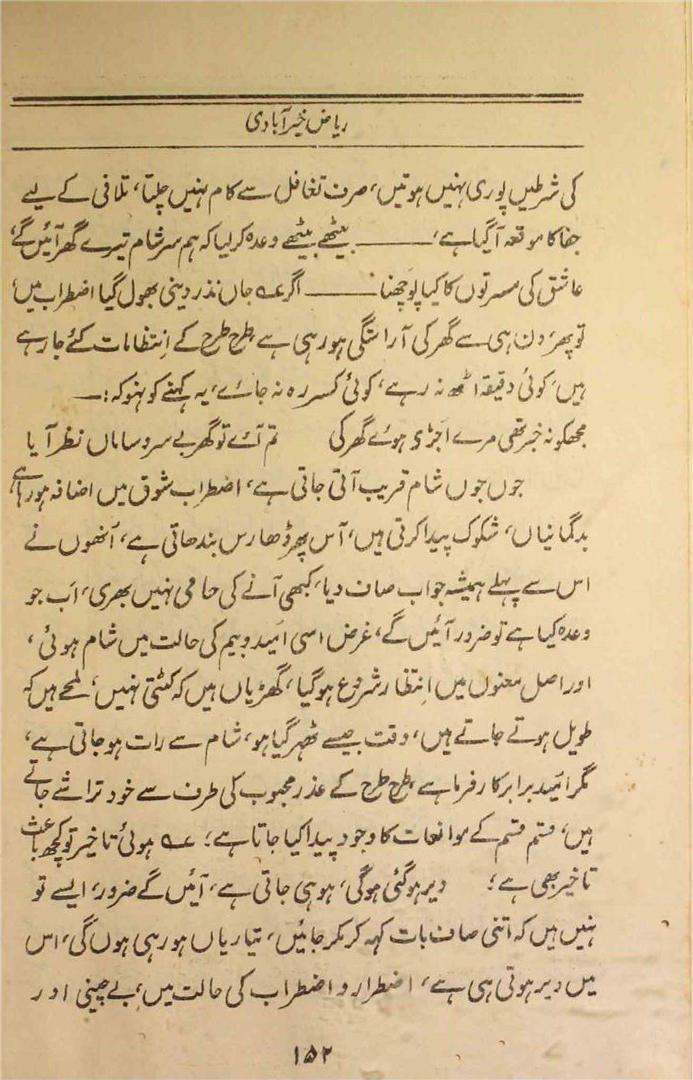 ریاض خیرآبادی
کی شرطیں پوری نہیں ہوتیں، صرف تغافل سے کام نہیں چلتا، تلافی کے لیے
جفا کا موقعہ آگیا ہے، ــــــ بیٹھے بیٹھے وعدہ کر لیا کہ ہم سرشام تیرے گھر آئیں گے
عاشق کی مسرتوں کا کیا پوچھنا ــــــ اگر ؏ جاں نذر دینی بھول گیا اضطراب میں،
تو پھر، دن ہی سے گھر کی آراستگی ہو رہی ہے، طرح طرح کے اِنتظامات کئے جارہے
ہیں، کوئی دقیقہ اٹھ نہ رہے، کوئی کسر رہ نہ جائے، یہ کہنے کو ہنو کہ:۔
مجھکو نہ خبر تھی مرے اُجڑی ہوئے گھر کی تم آئے تو گھر بے سروساماں نظر آیا
جوں جوں شام قریب آتی جاتی ہے، اضطراب شوق میں اضافہ ہورہا ہے،
بدگمانیاں، شکوک پیدا کرتی ہیں، آس پھر ڈھارس بندھاتی ہے، اُنھوں نے
اس سے پہلے ہمیشہ جواب صاف دیا، کبھی آنے کی حامی نہیں بھری، اَب جو
وعدہ کیا ہے تو ضرور آئیں گے، غرض اسی اُمید و بیم کی حالت میں شام ہوئی،
اور اصل معنوں میں اِنتظار شروع ہوگیا، گھڑیاں ہیں کہ کٹتی نہیں، لمحے ہیں کہ
طویل ہوتے جاتے ہیں، وقت جیسے ٹھہر گیا ہو، شام سے رات ہو جاتی ہے،
مگر اُمید برابر کارفرما ہے، طرح طرح کے عذر محبوب کی طرف سے خود تراشے جاتے
ہیں، قسم قسم کے موانعات کا وجود پیدا کیا جاتا ہے؛ ؏ ہوئی تاخیر تو کچھ باعث
تاخیر بھی ہے؛ دیر ہو گئی ہوگی، ہو ہی جاتی ہے، آئیں گے ضرور، ایسے تو
ہنیں ہیں کہ اتنی صاف بات کہہ کر مکر جائیں، تیاریاں ہو رہی ہوں گی، اس
میں دیر ہوتی ہی ہے، اضطرار و اضطراب کی حالت میں، بے چینی اور
۱۵۲